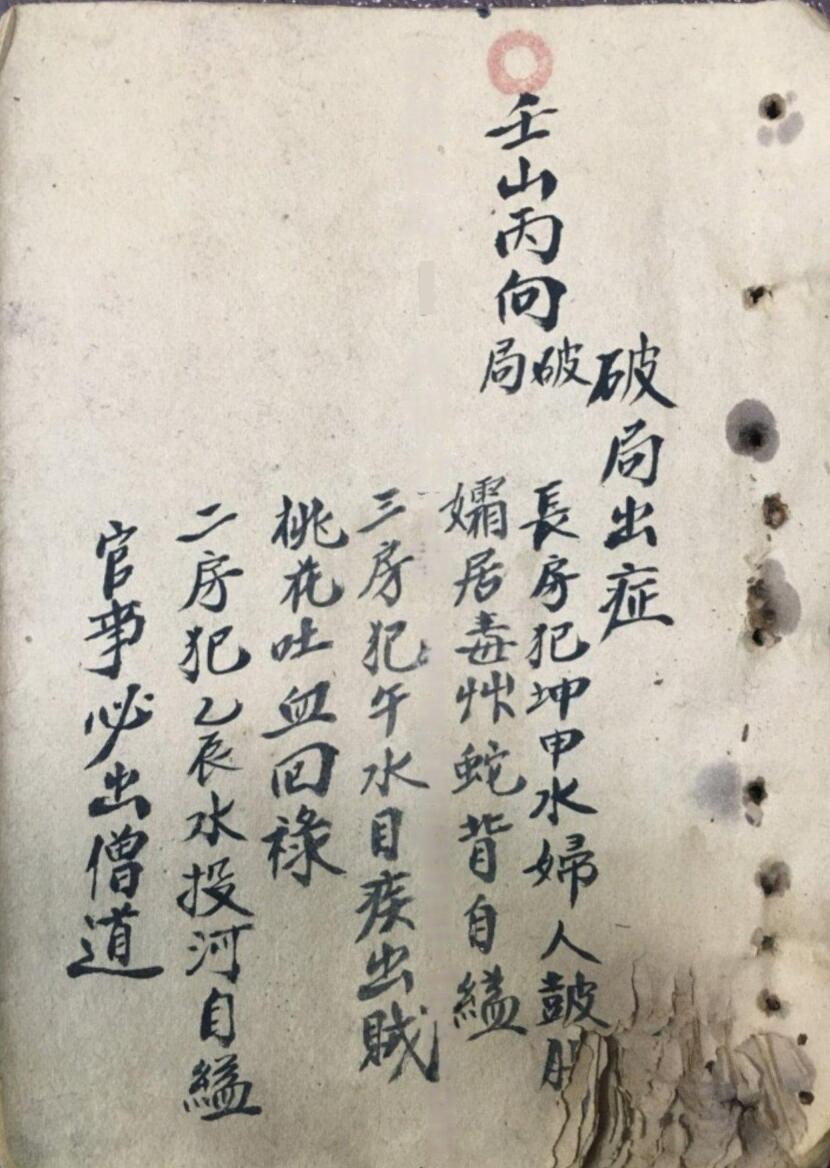 破局出症
壬山丙向破局
長房犯坤甲水婦人鼓
孀居毒艸蛇背自縊
三房犯午水目疾出賊
桃花吐血回祿
二房犯乙辰水投河自縊
官事必出僧道